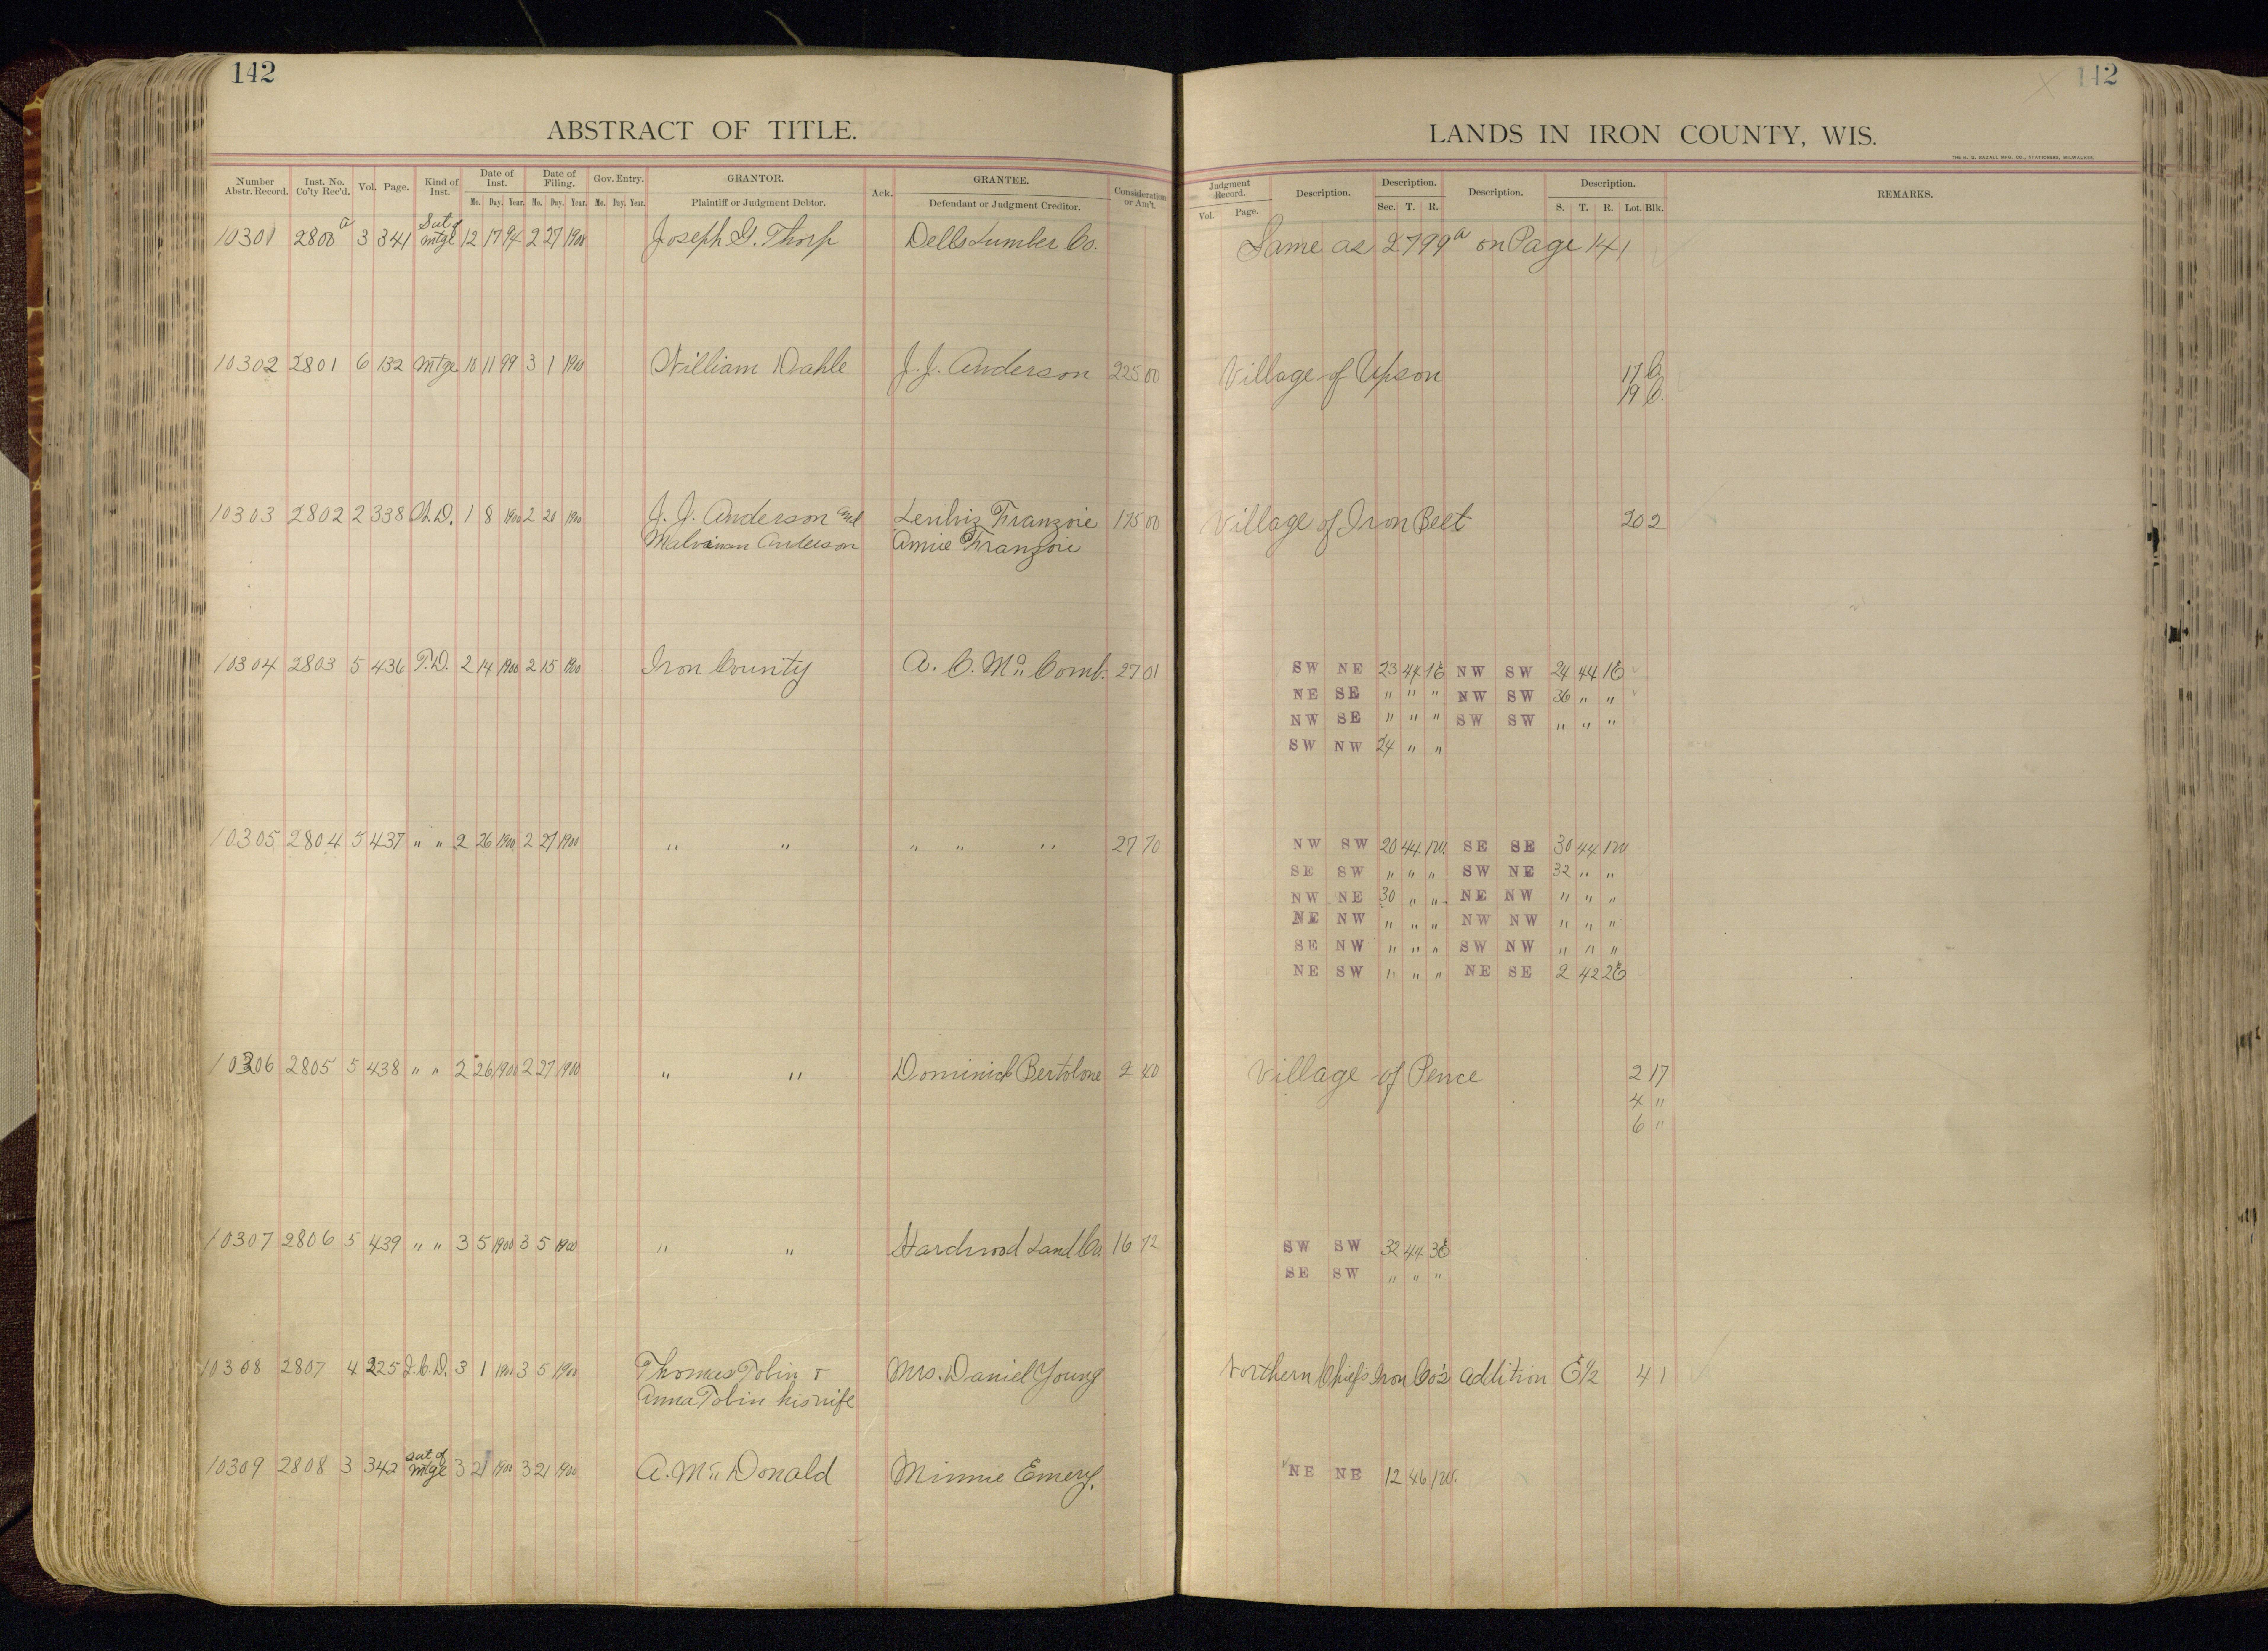 142
ABSTRACT OF TITLE.
Number Abstr. Record. Inst. No. Co'ty Rec'd. Vol. Page. Kind of Inst. Date of Inst. Date of Filing. Gov. Entry. GRANTOR. Ack. GRANTEE. Consideration or Am't.
Mo. Day. Year. Mo. Day. Year. Mo. Day. Year. Plaintiff or Judgment Debtor. Defendant or Judgment Creditor.
10301 2800a 3 341 Sat of mtge 12 17 94 2 27 1900 Joseph G. Thorp Dells Lumber Co.
10302 2801 6 132 Mtge. 10 11 99 3 1 1900 William Dahle J. J. Anderson 225 00
10303 2802 2 338 W.D. 1 8 1900 2 20 1900 J. J. Anderson and Franzoie 175 00
Anderson Franzoie
10304 2803 5 436 T.D. 2 14 1900 2 15 1900 Iron County A. C. Mc Comb. 27 01
10305 2804 5 437 " " 2 26 1900 2 27 1900 " " " " " 27 70
10306 2805 5 438 " " 2 26 1900 2 27 1900 " " Dominick Bertolone 2 40
10307 2806 5 439 " " 3 5 1900 3 5 1900 " " Hardwood Land Co. 16 72
10308 2807 4 225 Q.C.D. 3 1 1900 3 5 1900 Thomas Tobin & Mrs. Daniel Young
Anna Tobin his wife
10309 2808 3 342 Sat. of mtge 3 21 1900 3 21 1900 A. Mc Donald Minnie Emery.
142
LANDS IN IRON COUNTY, WIS.
THE H. G. RAZALL MFG. CO., STATIONERS, MILWAUKEE.
Judgment Record. Description. Description. Description. Description. REMARKS.
Vol. Page. Sec. T. R. S. T. R. Lot. Blk.
Same as 2799a on Page 141
Village of Upson 17 C.
19 C.
Village of Iron Belt 20 2
SW NE 23 44 1E NW SW 24 44 1E
NE SE " " " NW SW 36 " "
NW SE " " " SW SW " " "
SW NW 24 " "
NW SW 20 44 1W. SE SE 30 44 1W
SE SW " " " SW NE 32 " "
NW NE 30 " " NE NW " " "
NE NW " " " NW NW " " "
SE NW " " " SW NW " " "
NE SW " " " NE SE 2 42 2E
Village of Pence 2 17
4 "
6 "
SW SW 32 44 3E
SE SW " " "
Northern Chief Iron Co's addition E 1/2 4 1
NE NE 12 46 1W.